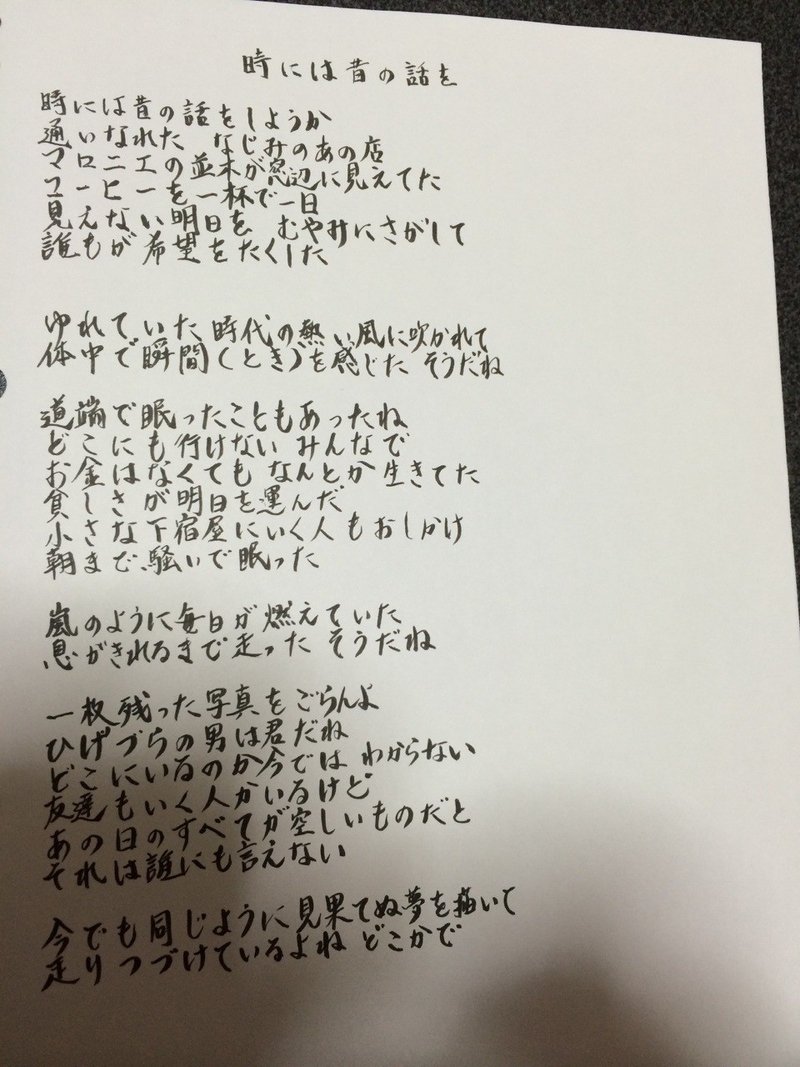 時には昔の話を
時には昔の話をしようか
通いなれた なじみのあの店
マロニエの並木が窓辺に見えてた
コーヒーを一杯で一日
見えない明日を むやみにさがして
誰もが希望をたくした
ゆれていた時代の熱い風に吹かれて
体中で瞬間(とき)を感じた そうだね
道端で眠ったこともあったね
どこにも行けない みんなで
お金はなくても なんとか生きてた
貧しさが明日を運んだ
小さな下宿屋にいく人もおしかけ
朝まで騒いで眠った
嵐のように毎日が燃えていた
息がきれるまで走った そうだね
一枚残った写真をごらんよ
ひげづらの男は君だね
どこにいるのか今では わからない
友達もいく人かいるけど
あの日のすべてが空しいものだと
それは誰にも言えない
今でも同じように見果てぬ夢を描いて
走りつづけているよね どこかで